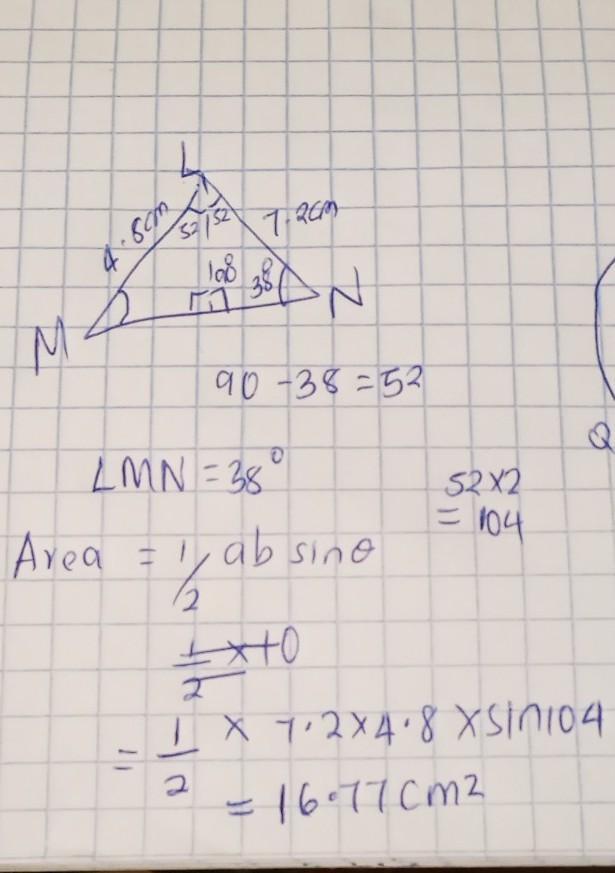 L
4.8cm
52 52
7.2cm
108
38
M
N
90 - 38 = 52
Q
LMN = 38°
52 x 2
= 104
Area = 1/2 ab sinθ
= 1/2 x 7.2 x 4.8 x sin104
= 16.77 cm2